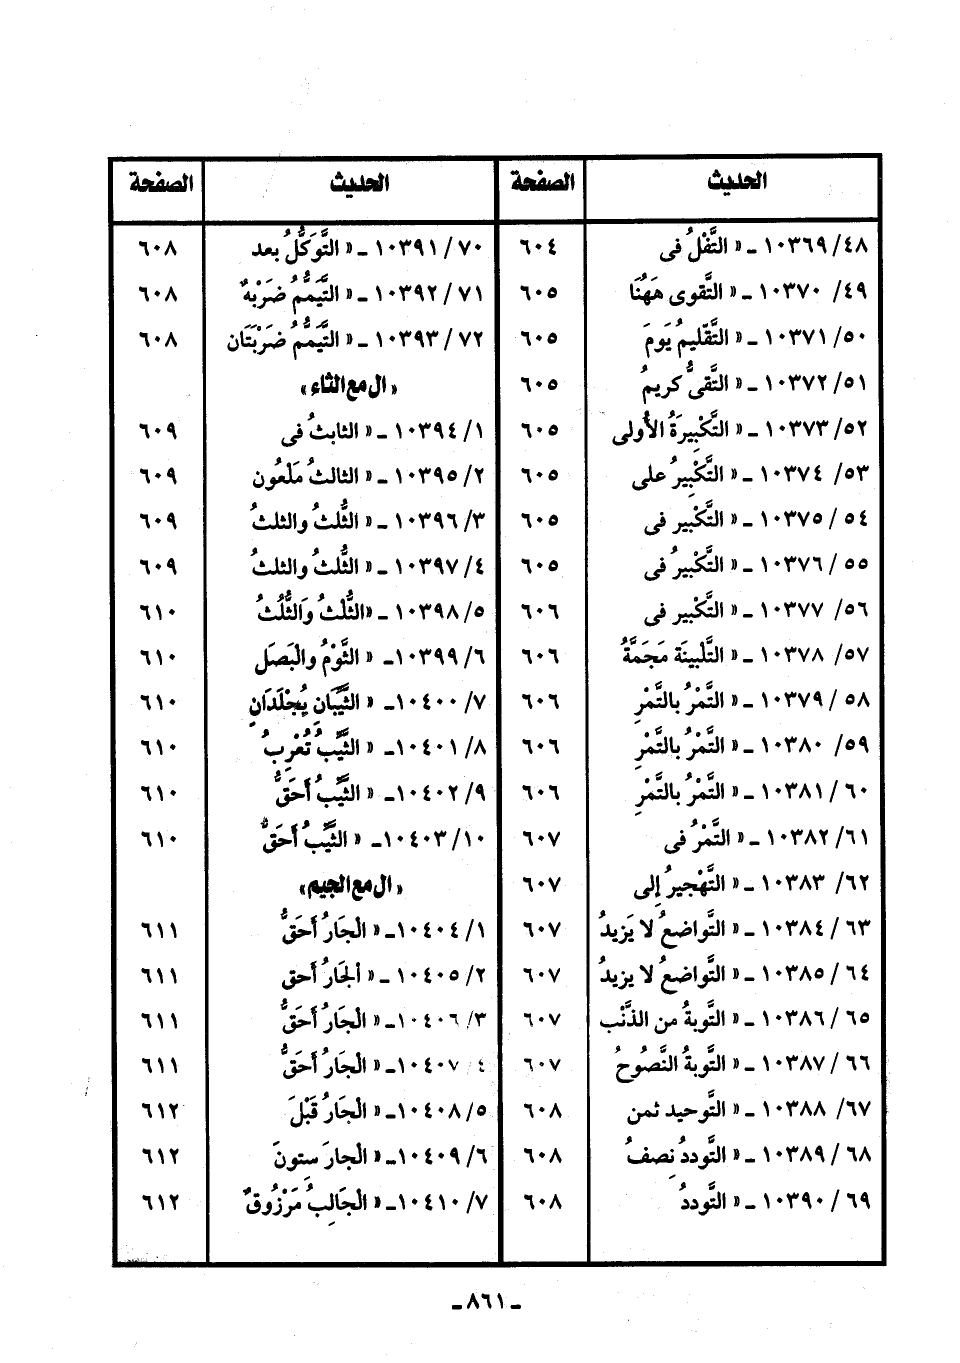 الحديث الصفحة
٤٨/ ١٠٣٦٩ ـ « التَّفْلُ فى ٦٠٤
٤٩/ ١٠٣٧٠ ـ « التَّقوى هَهُنَا ٦٠٥
٥٠/ ١٠٣٧١ ـ « التَّقْليمُ يَومَ ٦٠٥
٥١/ ١٠٣٧٢ ـ « التَّقىُّ كريمُ ٦٠٥
٥٢/ ١٠٣٧٣ ـ « التَّكْبِيرَةُ الأُولى ٦٠٥
٥٣/ ١٠٣٧٤ ـ « التَّكْبِيرُ على ٦٠٥
٥٤/ ١٠٣٧٥ ـ « التَّكْبير فى ٦٠٥
٥٥/ ١٠٣٧٦ ـ « التَّكْبيرُ فى ٦٠٥
٥٦/ ١٠٣٧٧ ـ « التَّكْبير فى ٦٠٦
٥٧/ ١٠٣٧٨ ـ « التَّلْبينَة مَجَمَّةُ ٦٠٦
٥٨/ ١٠٣٧٩ ـ « التَّمْرُ بالتَّمْرِ ٦٠٦
٥٩/ ١٠٣٨٠ ـ « التَّمْرُ بالتَّمْرِ ٦٠٦
٦٠/ ١٠٣٨١ ـ « التَّمْرُ بالتَّمْرِ ٦٠٦
٦١/ ١٠٣٨٢ ـ « التَّمْرُ فى ٦٠٧
٦٢/ ١٠٣٨٣ ـ « التَّهْجيرُ إلى ٦٠٧
٦٣/ ١٠٣٨٤ ـ « التَّواضعُ لا يَزيدُ ٦٠٧
٦٤/ ١٠٣٨٥ ـ « التَّواضعُ لا يزيدُ ٦٠٧
٦٥/ ١٠٣٨٦ ـ « التَّوبةُ من الذَّنْب ٦٠٧
٦٦/ ١٠٣٨٧ ـ « التَّوبةُ النَّصُوحُ ٦٠٧
٦٧/ ١٠٣٨٨ ـ « التَّوحيد ثمن ٦٠٨
٦٨/ ١٠٣٨٩ ـ « التَّوددُ نِصفُ ٦٠٨
٦٩/ ١٠٣٩٠ ـ « التَّوددُ ٦٠٨
الحديث الصفحة
٧٠/ ١٠٣٩١ ـ « التَّوَكُّلُ بعد ٦٠٨
٧١/ ١٠٣٩٢ ـ « التَّيَمُّمُ ضَرْبةٌ ٦٠٨
٧٢/ ١٠٣٩٣ ـ « التَّيَمُّمُ ضَرْبَتَان ٦٠٨
« ال مع الثاء »
١/ ١٠٣٩٤ ـ « الثابتُ فى ٦٠٩
٢/ ١٠٣٩٥ ـ « الثالثُ مَلْعُون ٦٠٩
٣/ ١٠٣٩٦ ـ « الثُّلثُ والثلثُ ٦٠٩
٤/ ١٠٣٩٧ ـ « الثُّلثُ والثلثُ ٦٠٩
٥/ ١٠٣٩٨ ـ «الثُّلْثُ وَالثُّلُثُ ٦١٠
٦/ ١٠٣٩٩ـ « الثَّوْمُ والْبَصَل ٦١٠
٧/ ١٠٤٠٠ـ « الثَّيِّبَانِ يُجْلَدَانِ ٦١٠
٨/ ١٠٤٠١ـ « الثَّيِّبُ تُعْرِبُ ٦١٠
٩/ ١٠٤٠٢ـ « الثَّيِّبُ أَحَقُّ ٦١٠
١٠/ ١٠٤٠٣ـ « الثَّيِّبُ أَحَقُّ ٦١٠
« ال مع الجيم »
١/ ١٠٤٠٤ـ « الْجَارُ أَحَقُّ ٦١١
٢/ ١٠٤٠٥ ـ « الجَارُ أحق ٦١١
٣/ ١٠٤٠٦ـ « الْجَارُ أَحَقُّ ٦١١
٤/ ١٠٤٠٧ـ « الْجَارُ أَحَقُّ ٦١١
٥/ ١٠٤٠٨ـ « الْجَارُ قَبْلَ ٦١٢
٦/ ١٠٤٠٩ـ « الْجارَ سِتونَ ٦١٢
٧/ ١٠٤١٠ـ « الْجَالِبُ مَرْزُوقٌ ٦١٢
ـ ٨٦١ ـ